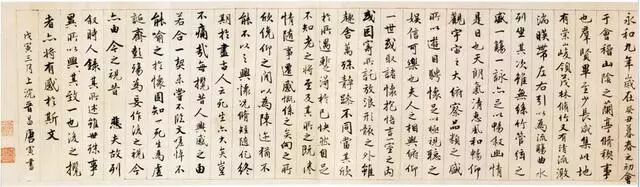 永和九年歲在癸丑暮春之初會
于會稽山陰之蘭亭脩稧事
也群賢畢至少長咸集此地
有崇山峻領茂林脩竹又有清流激
湍暎帶左右引以為流觴曲水
列坐其次雖無絲竹管弦之
盛一觴一詠亦足以暢敘幽情
是日也天朗氣清惠風和暢仰
觀宇宙之大俯察品類之盛
所以遊目騁懷足以極視聽之
娛信可樂也夫人之相與俯仰
一世或取諸懷抱悟言一室之內
或因寄所託放浪形骸之外雖
趣舍萬殊靜躁不同當其欣
於所遇暫得於己快然自足
不知老之將至及其所之既惓
情隨事遷感慨係之矣向之所
欣俛仰之間以為陳迹猶不
能不以之興懷況脩短隨化終
期於盡古人云死生亦大矣豈
不痛哉每攬昔人興感之由
若合一契未嘗不臨文嗟悼不
能喻之於懷固知一死生為虛
誕齊彭殤為妄作後之視今
亦由今之視昔 悲夫故列
敘時人錄其所述雖世殊事
異所以興懷其致一也後之攬
者亦將有感於斯文
戊寅三月上沅晉昌唐寅書